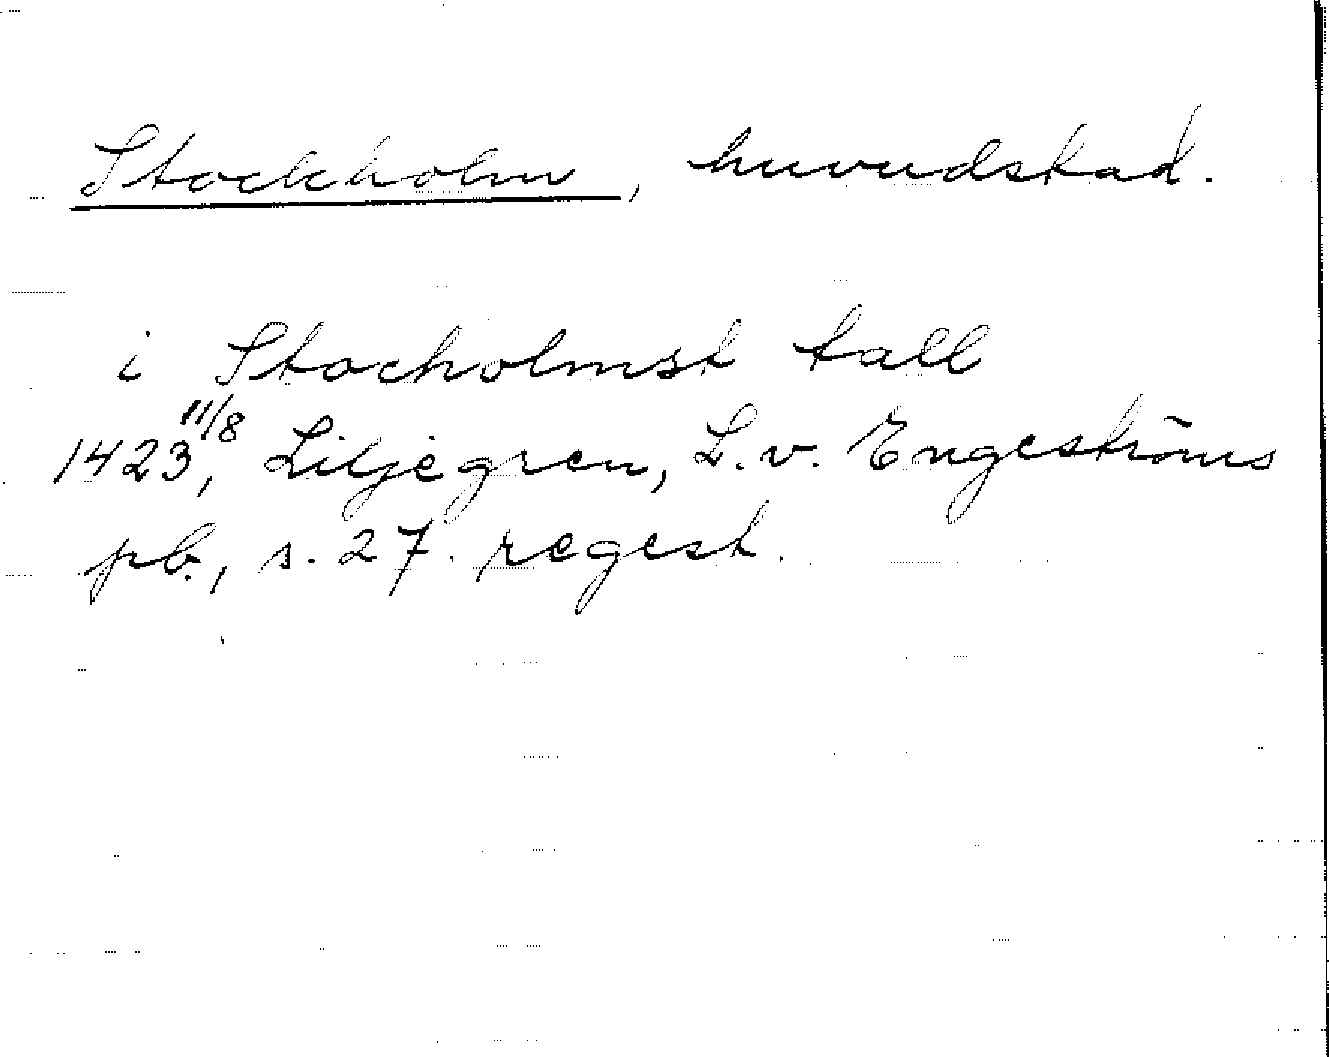 Stockholm, huvudstad.
i Stocholmst tall
1423 11/8, Liljegren, L. v. Engeströms
pb., s. 27. regest.